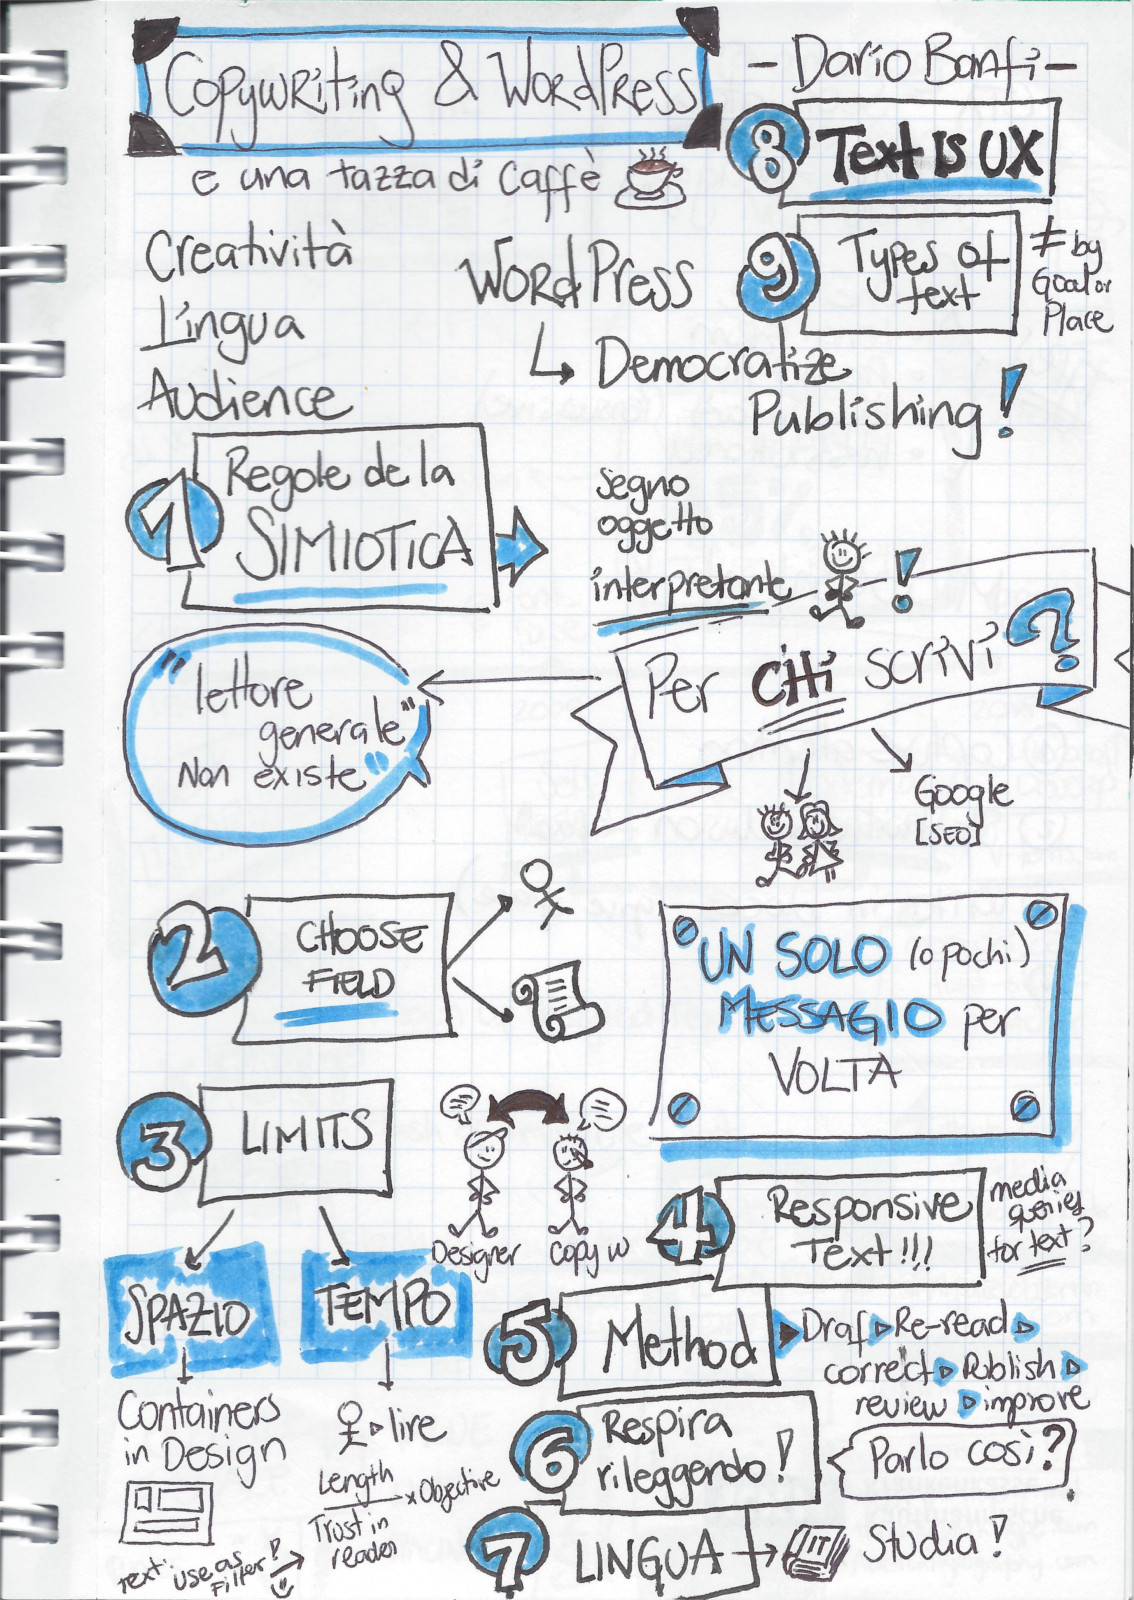 Copywriting & WordPress
e una tazza di caffè
- Dario Banfi -
Creatività
Lingua
Audience
WordPress
Democratize
Publishing!
1
Regole de la
SIMIOTICA
segno
oggetto
interpretante
!
Per CHi scrivi?
"lettore
generale"
Non existe"
Google
[SEO]
2
CHOOSE
FIELD
UN SOLO (o pochi)
MESSAGIO per
VOLTA
3
LIMITS
Designer
Copy w
SPAZIO
TEMPO
Containers
in Design
text:
use as
Filter!
lire
Length
Trust in
reader
x Objective
4
Responsive
Text!!!
media
queries
for text?
5
Method
Draf Re-read
correct Publish
review improve
6
Respira
rileggendo!
Parlo così?
7
LINGUA
IT
Studia!
8
Text IS UX
9
Types of
text
≠ by
Goal or
Place